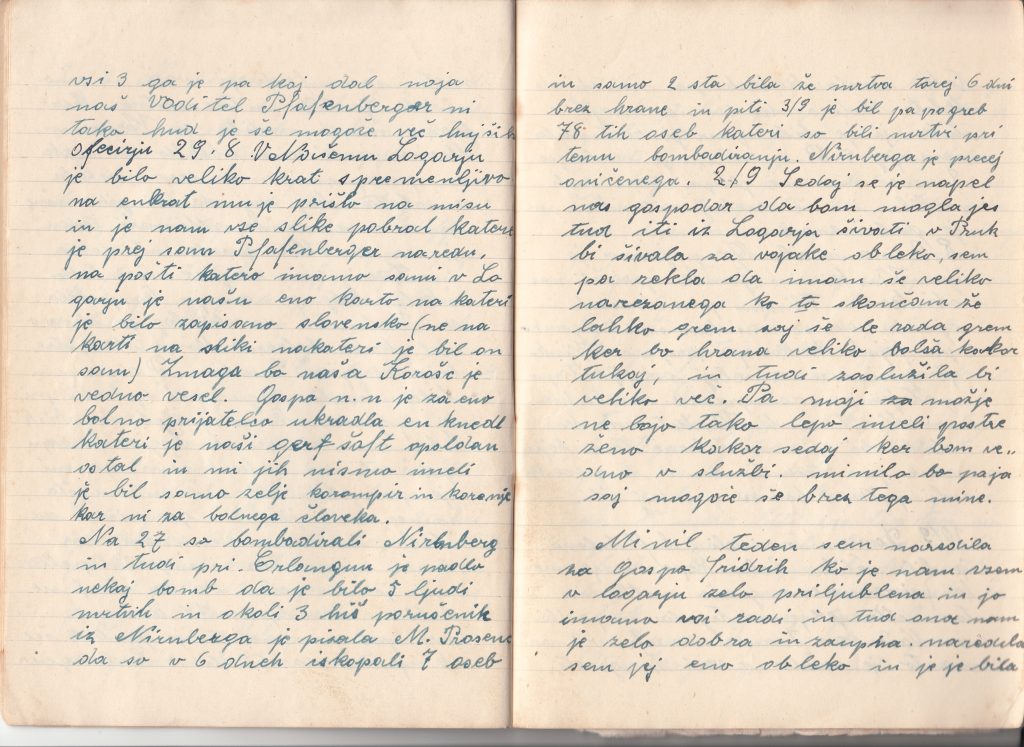 vsi 3 ga je pa kaj dal noja
naš Voditel Pfafenberger ni
tako hud je še mogoče več hujših
Ofecirju 29.8. V Našemu Logarju
je bilo veliko krat spremenljivo
na enkrat mu je prišlo na misu
in je nam vse slike pobral katere
je prej sam Pfafenberger naredu,
na pošti katero imamo sami v Lo
garju je našu eno karto na kateri
je bilo zapisano slovensko (ne na
karti na sliki nakateri je bil on
sam) Zmaga bo naša Korošc je
vedno vesel. Gospa n.n je za eno
bolno prijatelco ukradla en knedl
kateri je naši gerfšaft opoldan
ostal in mi jih nismo imeli
je bil samo zelje korompir in korenje
kar ni za bolnega človeka.
Na 27 so bombadirali Nirnberg
in tudi pri. Erlangun je padlo
nekaj bomb da je bilo 5 ljudi
mrtvih in okoli 3 hiš porušenik
iz Nirnberga je pisala M. Prosenc
da so v 6 dneh iskopali 7 oseb
in samo 2 sta bila že mrtva torej 6 dni
brez hrane in piti 3/9 je bil pa pogreb
78 tih oseb kateri so bili mrtvi pri
temu bombadiranju. Nirnberga je precej
oničenega. 2/9 Sedaj se je napel
nas gospodar da bom mogla jes
tud iti iz Logarja šivati v Pruk
bi šivala za vojake obleko, sem
pa rekla da imam še veliko
narezanega ko to skončam že
lahko grem saj še le rada grem
ker bo hrana veliko bolša kakor
tukaj, in tudi zaslužila bi
veliko več. Pa moji za možje
ne bojo tako lepo imeli postre
ženo kakor sedaj ker bom ve„
dno v službi. minilo bo pa ja
saj mogoče še brez tega mine.
Minil teden sem naredila
za Gospo Fridrih ko je nam vsem
v logarju zelo priljublena in jo
imamo vsi radi in tud ona nam
je zelo dobra in zaupna. naredila
sem jej eno obleko in je je bila